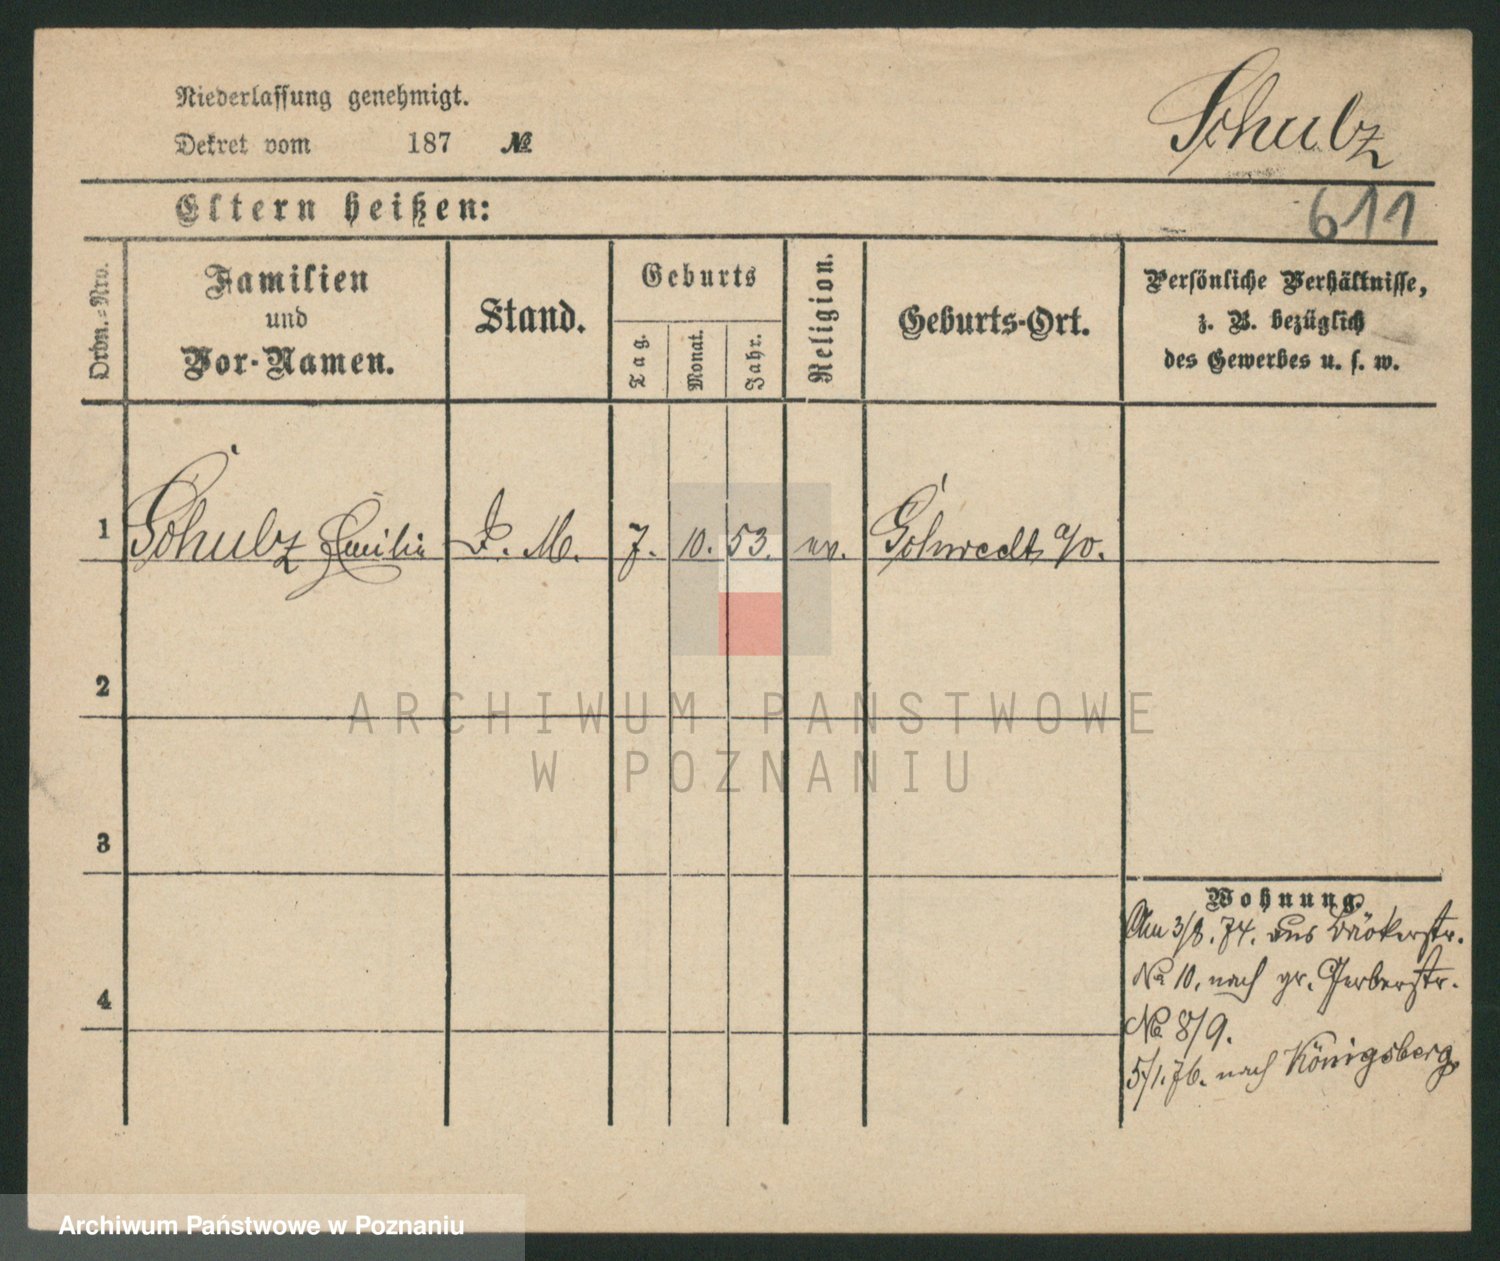 Niederlassung genehmigt.
Dekret vom 187 №
Schulz
Eltern heißen:
611
Ordn.-Nro.
Familien
und
Vor-Namen.
Stand.
Geburts
Tag.
Monat.
Jahr.
Religion.
Geburts-Ort.
Persönliche Verhältnisse,
z. B. bezüglich
des Gewerbes u. s. w.
1 Schulz Emilie D. M. 7. 10. 53. ev. Schwedt a/O.
2
ARCHIWUM PAŃSTWOWE
W POZNANIU
3
Wohnung.
Am 3/8. 74. aus Bäckerstr.
No 10. nach gr. Gerberstr.
4
No 8/9.
5/1. 76. nach Königsberg
Archiwum Państwowe w Poznaniu